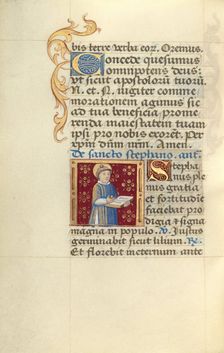 bis terre verba eor. Oremus.
Concede quesumus
omnipotens deus:
ut sicut apostolorū tuorū
N. et. N. iugiter comme
morationem agimus sic
ad tua beneficia prome
renda maiestatem tuam
ipsi pro nobis exoret. Per
xpm dn̄m nrm. Amen.
De sancto stephano. ant.
Stepha
nus ple
nus gratia
et fortitudīe
faciebat pro
digia & signa
magna in populo. V. Iustus
germinabit sicut lilium. R.
Et florebit ineternum ante